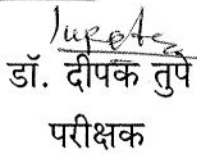 डॉ. दीपक तुपे
परीक्षक